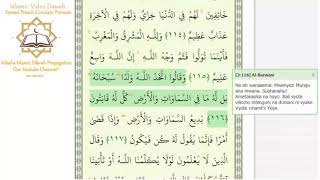 Islamic Video Dawah
Spread Preach Circulate Promote
Islamic Dawah Propagation
Our Youtube Channel
خَائِفِينَ ۚ لَهُمْ فِي الدُّنْيَا خِزْيٌ وَلَهُمْ فِي الْآخِرَةِ
عَذَابٌ عَظِيمٌ (١١٤) وَلِلَّهِ الْمَشْرِقُ وَالْمَغْرِبُ ۚ
فَأَيْنَمَا تُوَلُّوا فَثَمَّ وَجْهُ اللَّهِ ۚ إِنَّ اللَّهَ وَاسِعٌ
عَلِيمٌ (١١٥) وَقَالُوا اتَّخَذَ اللَّهُ وَلَدًا ۗ سُبْحَانَهُ ۖ
بَل لَّهُ مَا فِي السَّمَاوَاتِ وَالْأَرْضِ ۖ كُلٌّ لَّهُ قَانِتُونَ
(١١٦) بَدِيعُ السَّمَاوَاتِ وَالْأَرْضِ ۖ وَإِذَا قَضَىٰ
أَمْرًا فَإِنَّمَا يَقُولُ لَهُ كُن فَيَكُونُ (١١٧) وَقَالَ
الَّذِينَ لَا يَعْلَمُونَ لَوْلَا يُكَلِّمُنَا اللَّهُ أَوْ تَأْتِينَا
[2:116] Al-Barwani
na ati wanasema: Mwenyezi Mungu
ana mwana. Subhanahu!
Ametakasika na hayo. Bali vyote
vilivyomo mbinguni na duniani ni vyake
vyote vinamt'ii Yeye.